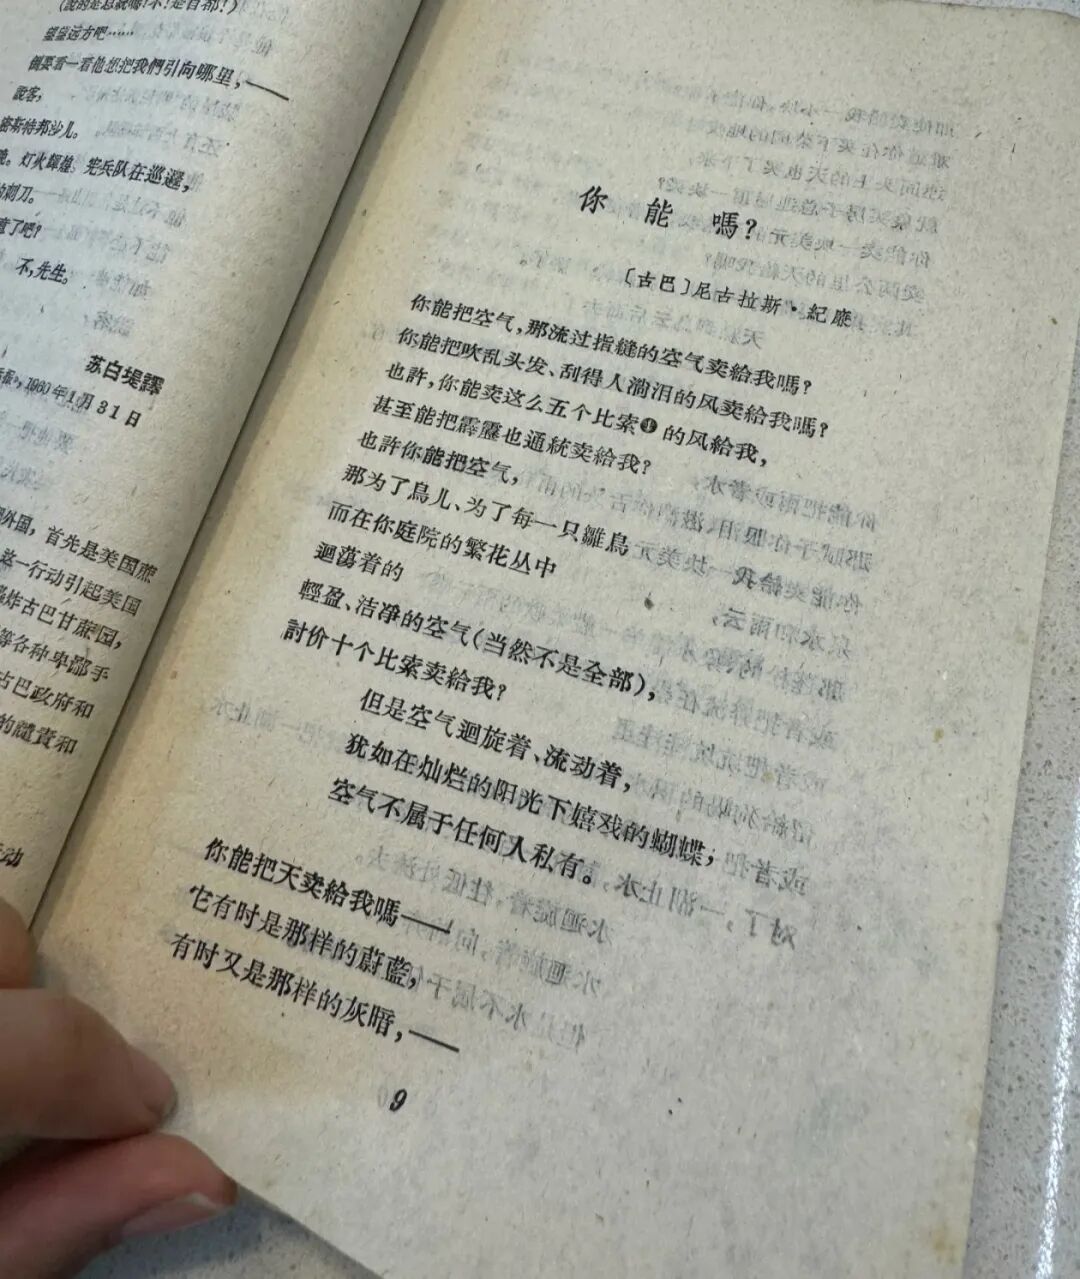 (說的是总統嗎?不!是首都!)
望望远方吧……
倒要看一看他想把我們引向哪里,——
說客;
密斯特邦沙儿。
灯火輝煌,宪兵队在巡邏,
的刺刀。
了吧?
不,先生。
苏白堤譯
1960年1月31日
外国,首先是美国蔗
这一行动引起美国
炸古巴甘蔗园,
等各种卑鄙手
古巴政府和
的譴責和
动
你能嗎?
〔古巴〕尼古拉斯·紀廉
你能把空气,那流过指縫的空气卖給我嗎?
你能把吹乱头发、刮得人淌泪的风卖給我嗎?
也許,你能卖这么五个比索①的风給我,
甚至能把霹靂也通統卖給我?
也許你能把空气,
那为了鳥儿、为了每一只雛鳥
而在你庭院的繁花丛中
迴蕩着的
輕盈、洁净的空气(当然不是全部),
討价十个比索卖給我?
但是空气迴旋着、流动着,
犹如在灿烂的阳光下嬉戏的蝴蝶;
空气不属于任何人私有。
你能把天卖給我嗎——
它有时是那样的蔚藍,
有时又是那样的灰暗,——
9